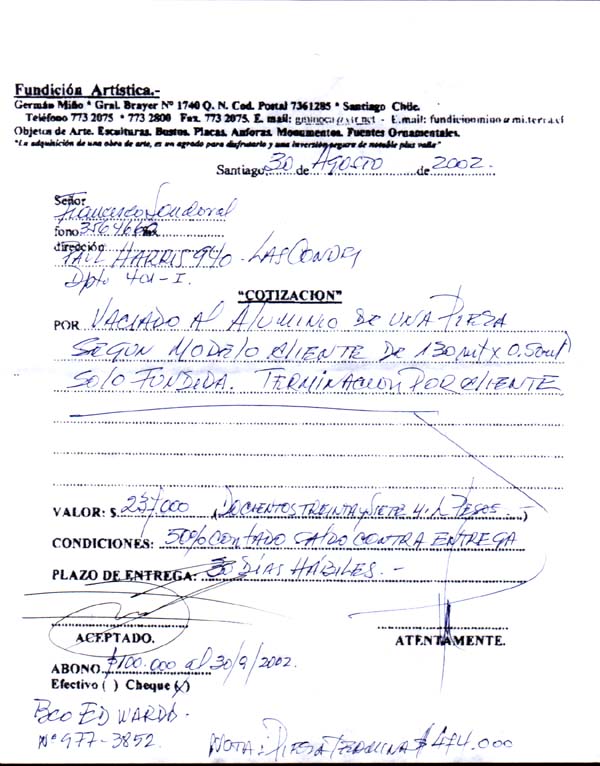 Fundición Artística.-
Germán Miño * Gral. Brayer Nº 1740 Q. N. Cod. Postal 7361285 * Santiago Chile.
Teléfono 773 2075 * 773 2800 Fax. 773 2075. E. mail: - E.mail:
Objetos de Arte. Esculturas. Bustos. Placas. Anforas. Monumentos. Fuentes Ornamentales.
"La adquisición de una obra de arte, es un agrado para disfrutarlo y una inversión segura de notable plus valía"
Santiago, 30 de AGOSTO de 2002.
Señor
Francisco Sandoval
fono
dirección
PAUL HARRIS 940 - LAS CONDES
Dpto 401-I.
"COTIZACION"
POR VACIADO AL ALUMINIO DE UNA PIEZA
SEGUN MODELO CLIENTE DE 130 x 0.50
SOLO FUNDIDA. TERMINACION POR CLIENTE
VALOR: $ 237.000 (DOCIENTOS TREINTA y SIETE MIL PESOS.-)
CONDICIONES: 50% CONTADO SALDO CONTRA ENTREGA
PLAZO DE ENTREGA: 30 DIAS HABILES.-
ACEPTADO.
ATENTAMENTE.
ABONO $100.000 al 30/9/2002.
Efectivo ( ) Cheque (x)
Bco EDWARDS.
Nº 977-3852.
NOTA: PIEZA TERMINA $414.000